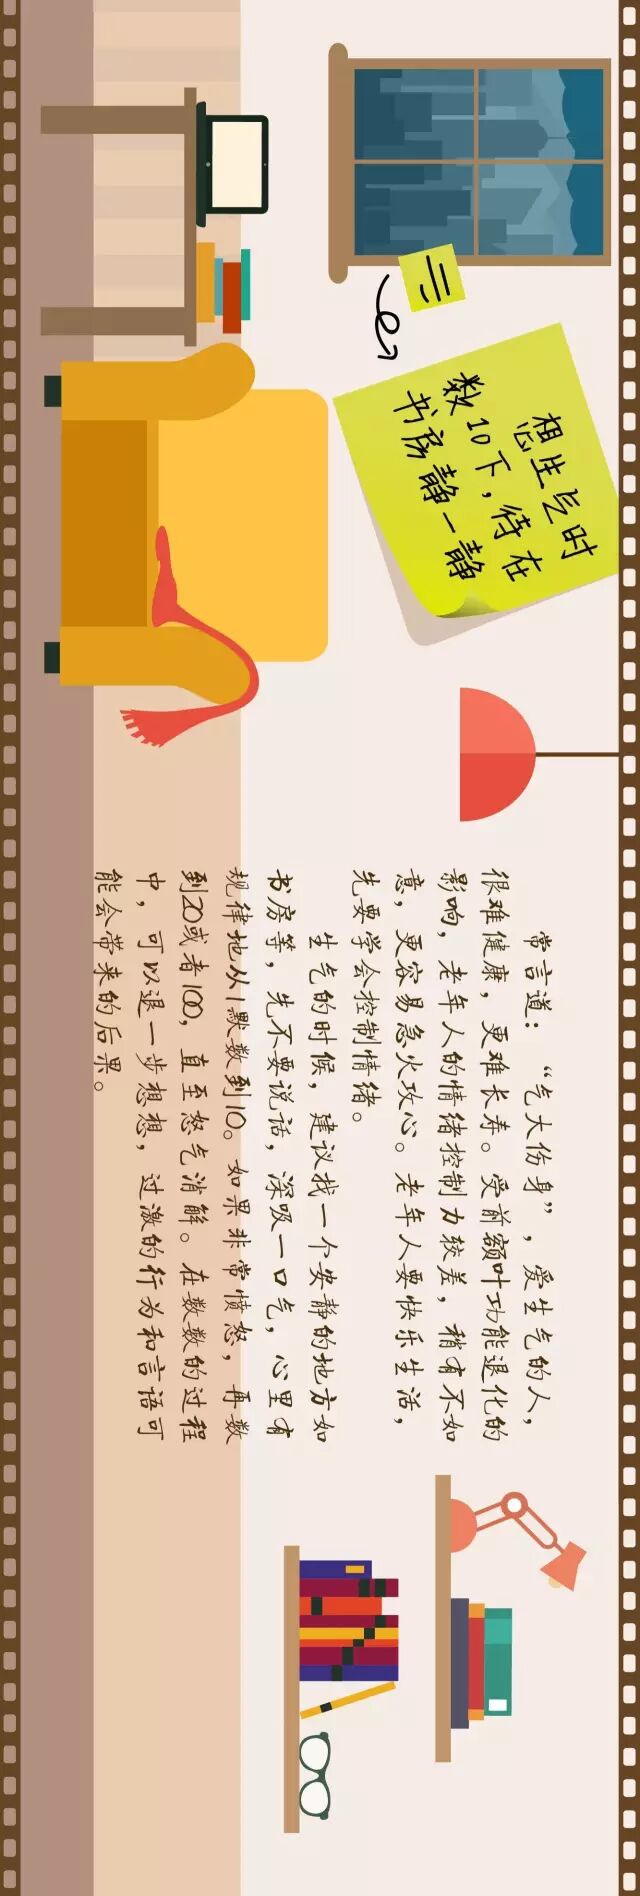 想生气时
数10下，待在
书房静一静
常言道：“气大伤身”，爱生气的人，
很难健康，更难长寿。受前额叶功能退化的
影响，老年人的情绪控制力较差，稍有不如
意，更容易急火攻心。老年人要快乐生活，
先要学会控制情绪。
生气的时候，建议找一个安静的地方如
书房等，先不要说话，深吸一口气，心里有
规律地从1默数到10。如果非常愤怒，再数
到20或者100，直至怒气消解。在数数的过程
中，可以退一步想想，过激的行为和言语可
能会带来的后果。